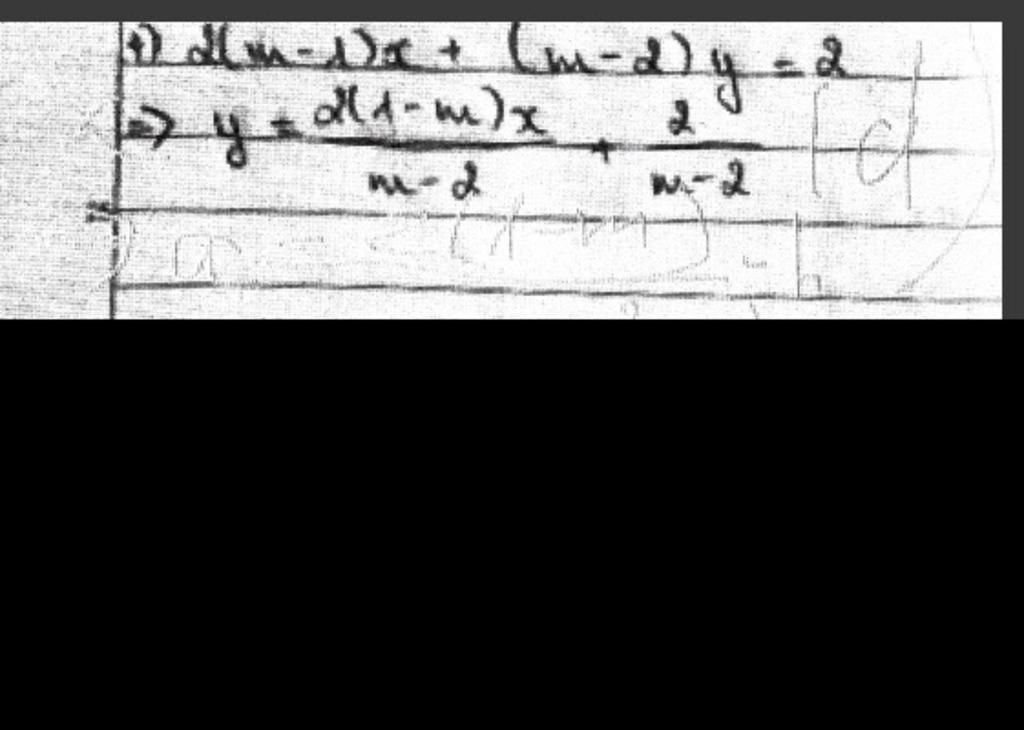 +) 2(m-1)x + (m-2)y = 2
=> y = 2(1-m)x / m-2 + 2 / m-2 (d)